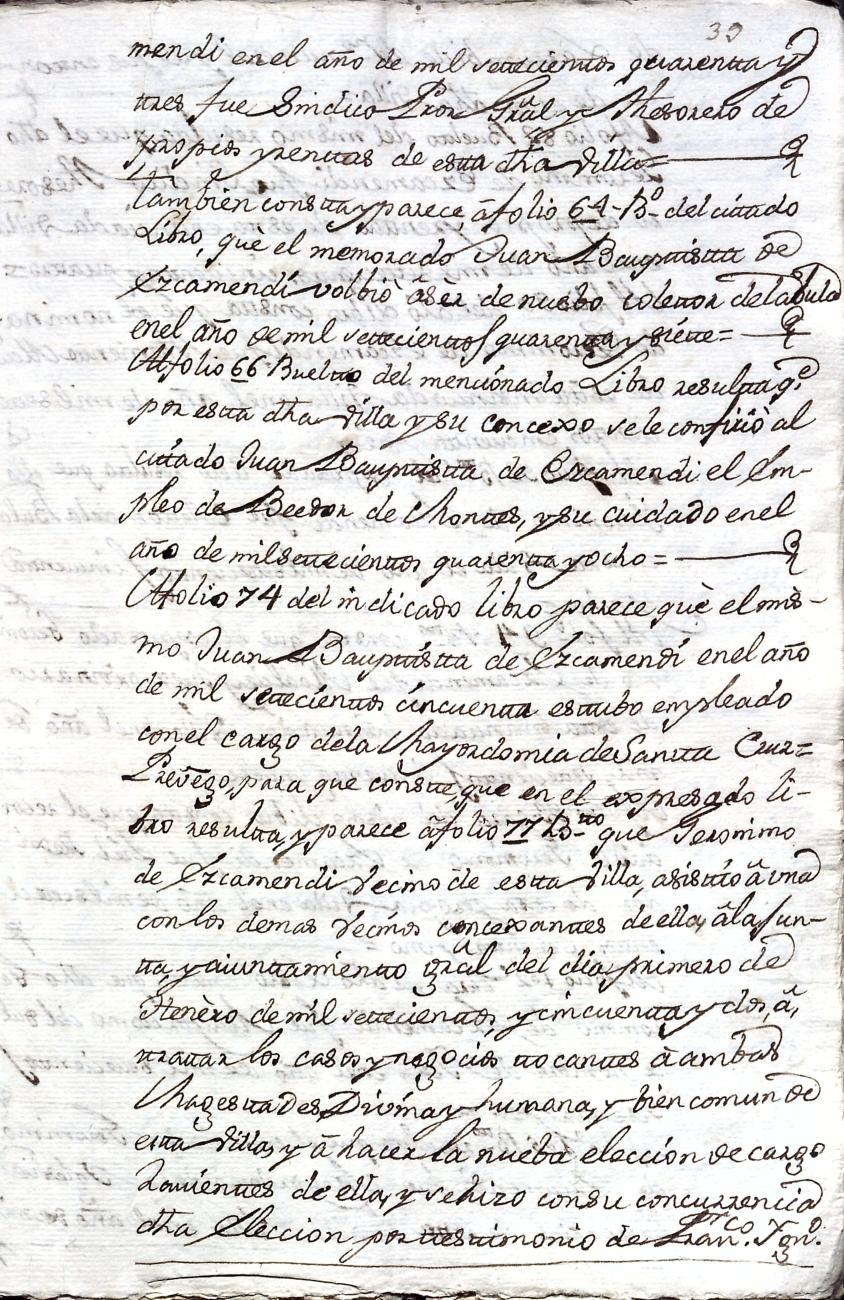 39
mendi en el año de mil settecienttos quarentta y
ttres fue Sindico Pror Gräl y Thesorero de
propios y renttas de estta dha villa=
Tambien constta y parece â folio 64-B.º del cittado
Libro, què el memorado Juan Bauptistta de
Ezcamendi volbiò â sèr de nuebo colettor de la bula
en el año de mil settecienttos quarentta y siette=
Al folio 66 Buelto del mencionado Libro resultta q.e
por estta dha villa y su concexo se le confiriò al
cittado Juan Bauptistta de Ezcamendi el Em-
pleo de Beedor de Monttes, y su cuidado en el
año de mil settecienttos quarentta y ocho=
Al folio 74 del indicado libro parece què el mis-
mo Juan Bauptistta de Ezcamendi en el año
de mil settecienttos cincuentta esttubo empleado
con el cargo de la Mayordomia de Santta Cruz=
Prevengo, para que constte, que en el expresado li-
bro resultta, y parece â folio 77 B-tto que Geronimo
de Ezcamendi vecino de estta villa, asisttio â una
con los demas vecinos concexanttes de ella, â la Jun-
tta, y aiunttamientto gräl del dia primero de
Henèro de mil settecienttos, y cincuentta y dos, â,
ttrattar los casos y negocios ttocanttes â ambas
Magesttades Divina y humana, y bien comun de
estta villa, y â hacer la nueba elección de cargo
havienttes de ella, y se hizo con su concurrencia
dha Eleccion por ttesttimonio de Fran.co Ign.º